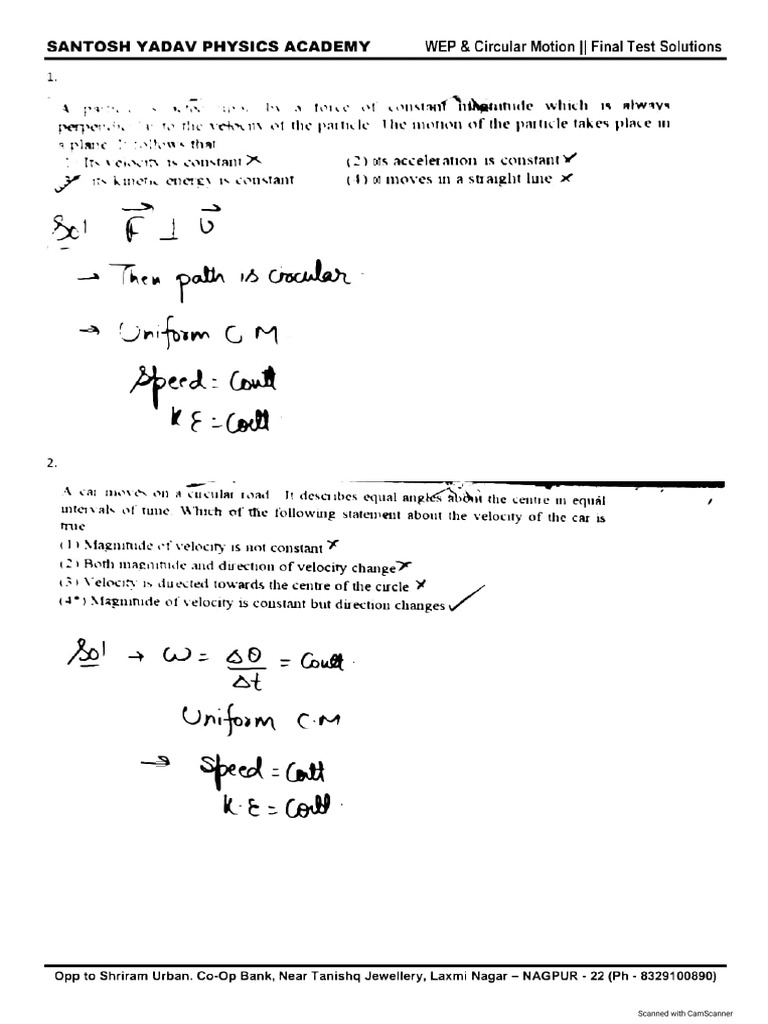 SANTOSH YADAV PHYSICS ACADEMY WEP & Circular Motion || Final Test Solutions
1.
A by a force of constant magnitude which is always
to the velocity of the particle. The motion of the particle takes place in
a plane. It follows that
Its velocity is constant × (2) its acceleration is constant ×
3 its kinetic energy is constant (4) it moves in a straight line ×
Sol F ⊥ υ
→ Then path is circular.
→ Uniform C M
Speed = Constt
K E = Constt
2.
A car moves on a circular road. It describes equal angles about the centre in equal
intervals of time. Which of the following statement about the velocity of the car is
true
(1) Magnitude of velocity is not constant ×
(2) Both magnitude and direction of velocity change ×
(3) Velocity is directed towards the centre of the circle ×
(4*) Magnitude of velocity is constant but direction changes ✓
Sol → ω = Δθ/Δt = Constt.
Uniform C.M
→ Speed = Constt
K.E = Constt.
Opp to Shriram Urban. Co-Op Bank, Near Tanishq Jewellery, Laxmi Nagar – NAGPUR - 22 (Ph - 8329100890)
Scanned with CamScanner